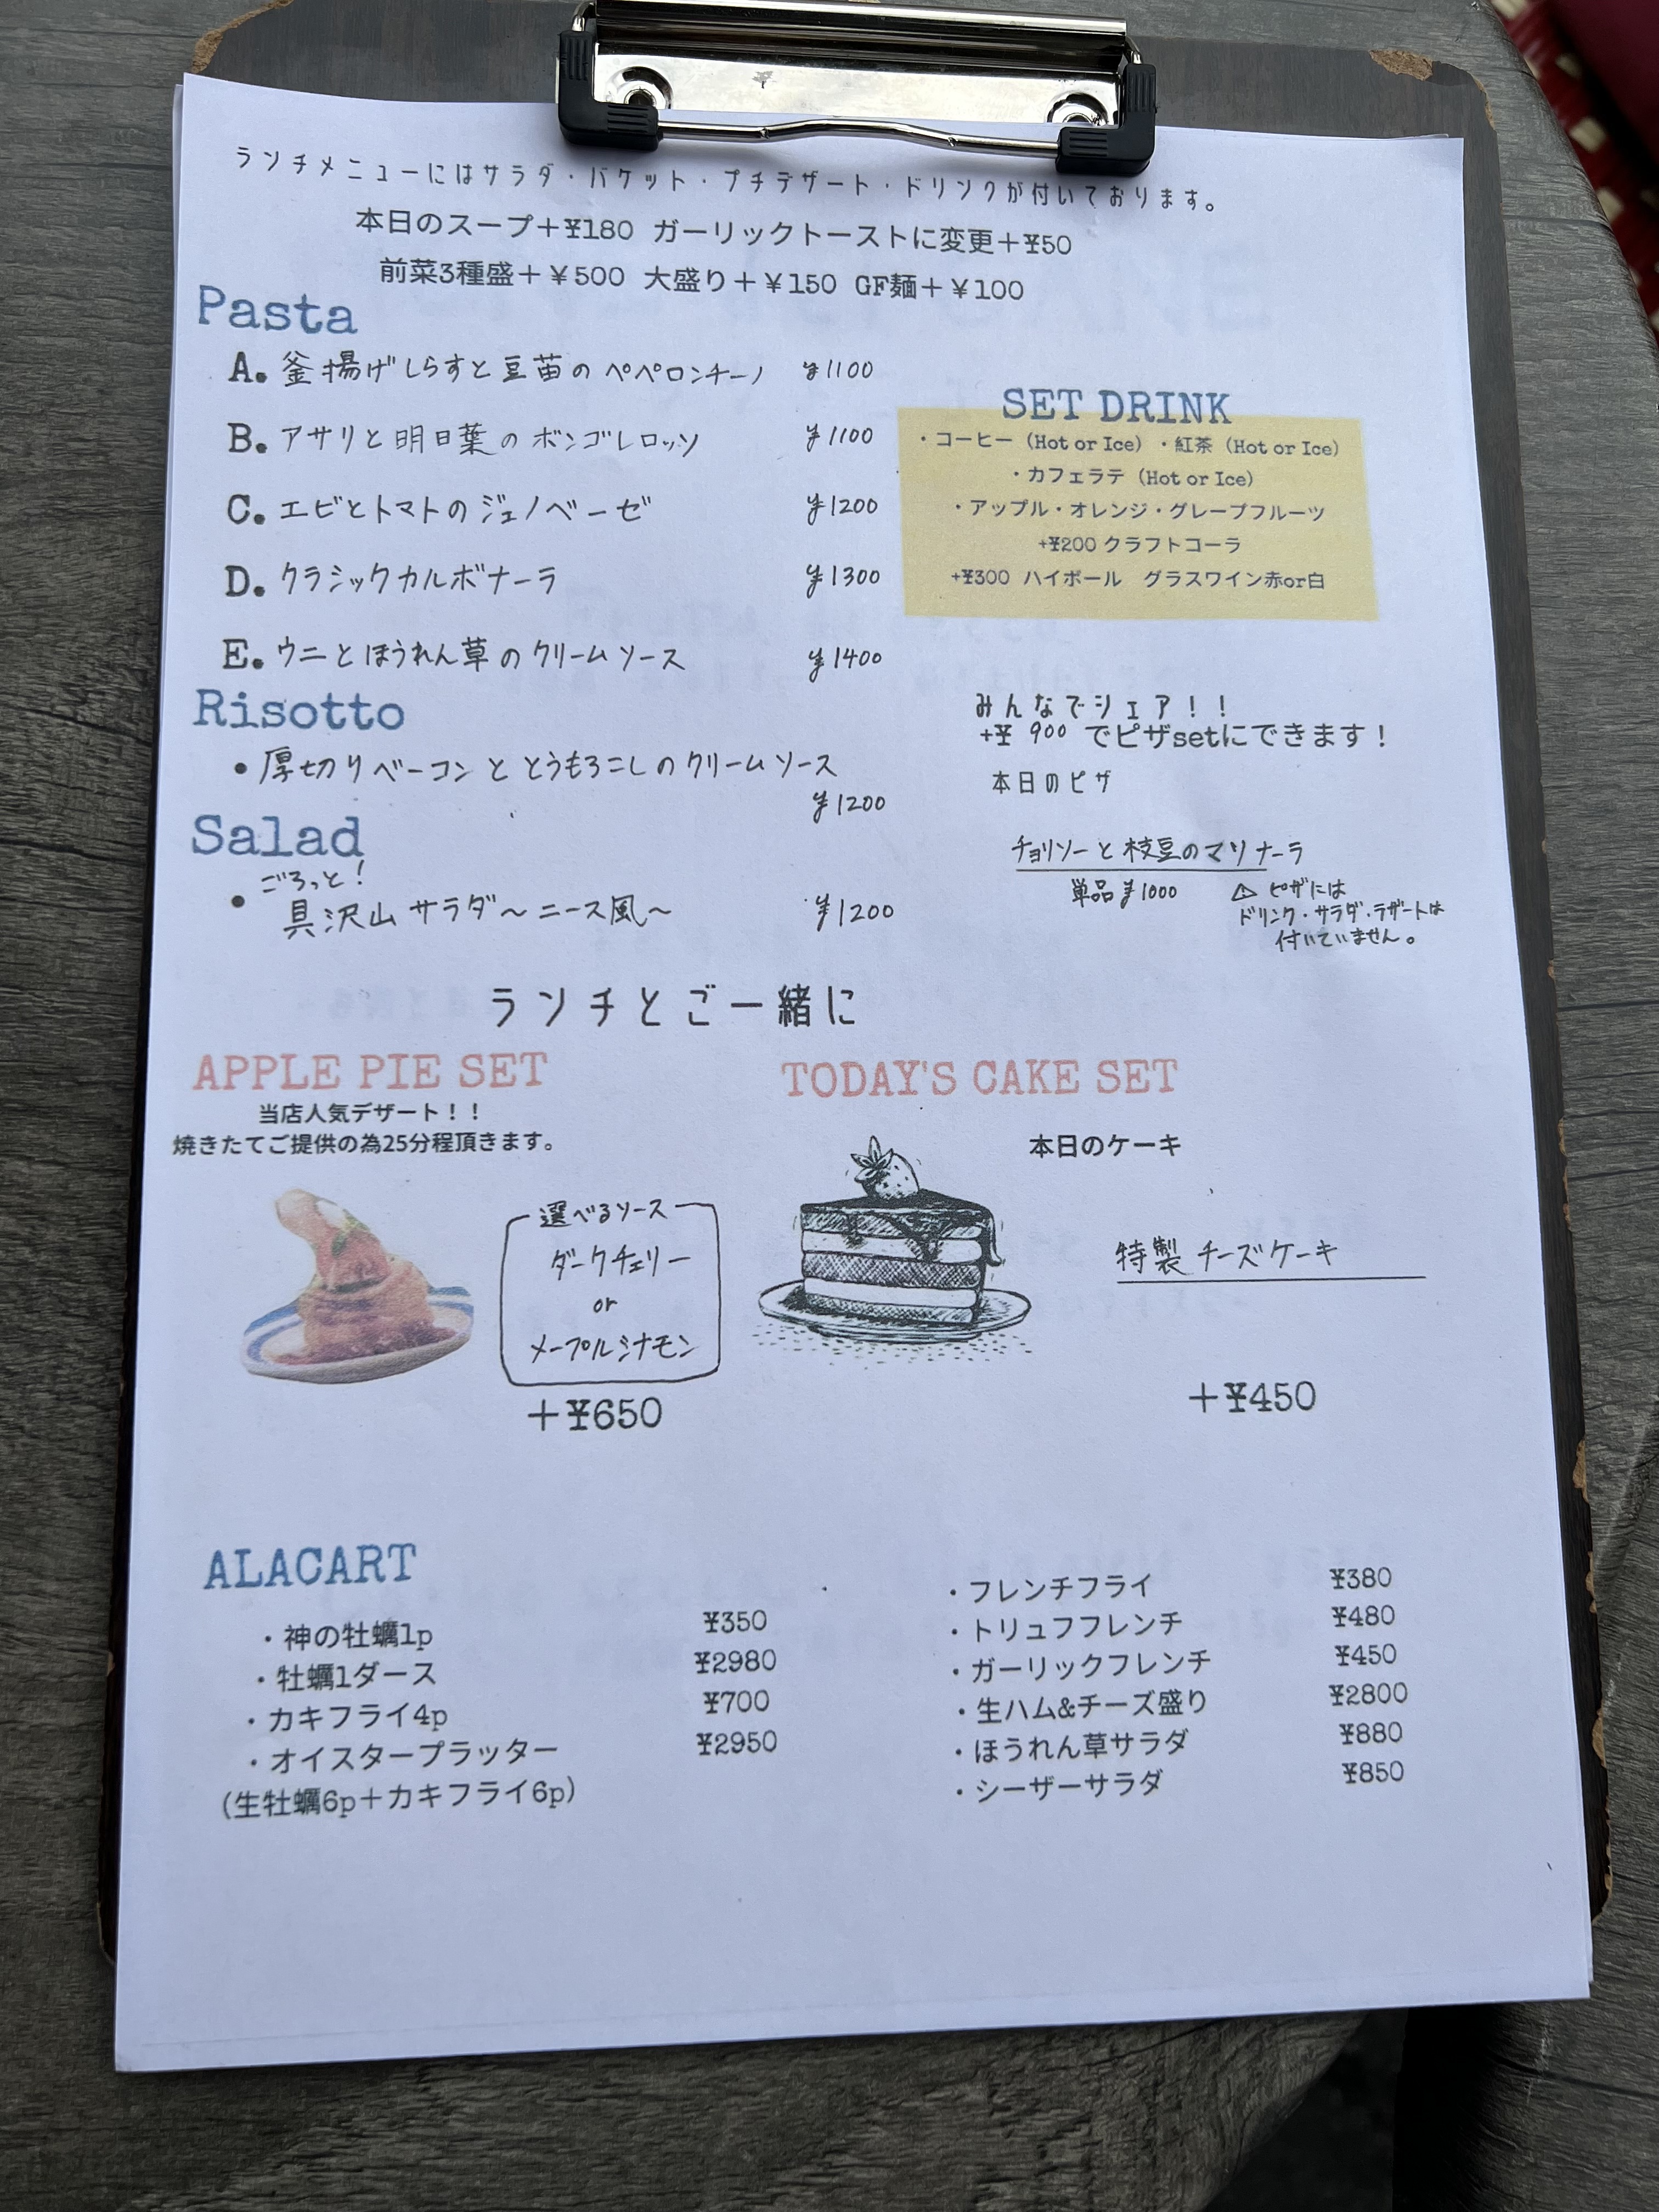 ランチメニューにはサラダ・バケット・プチデザート・ドリンクが付いております。
本日のスープ+¥180 ガーリックトーストに変更+¥50
前菜3種盛+¥500 大盛り+¥150 GF麺+¥100
Pasta
A. 釜揚げしらすと豆苗のペペロンチーノ ¥1100
B. アサリと明日葉のボンゴレロッソ ¥1100
C. エビとトマトのジェノベーゼ ¥1200
D. クラシックカルボナーラ ¥1300
E. ウニとほうれん草のクリームソース ¥1400
SET DRINK
・コーヒー（Hot or Ice）・紅茶（Hot or Ice）
・カフェラテ（Hot or Ice）
・アップル・オレンジ・グレープフルーツ
+¥200 クラフトコーラ
+¥300 ハイボール グラスワイン赤or白
Risotto
・厚切りベーコンととうもろこしのクリームソース
¥1200
Salad
ごろっと！
・具沢山サラダ～ニース風～ ¥1200
みんなでシェア！！
+¥ 900 でピザsetにできます！
本日のピザ
チョリソーと枝豆のマリナーラ
単品¥1000
⚠ ピザには
ドリンク・サラダ・デザートは
付いていません。
ランチとご一緒に
APPLE PIE SET
当店人気デザート！！
焼きたてご提供の為25分程頂きます。
選べるソース
ダークチェリー
or
メープルシナモン
+¥650
TODAY'S CAKE SET
本日のケーキ
特製チーズケーキ
+¥450
ALACART
・神の牡蠣1p ¥350
・牡蠣1ダース ¥2980
・カキフライ4p ¥700
・オイスタープラッター ¥2950
（生牡蠣6p+カキフライ6p）
・フレンチフライ ¥380
・トリュフフレンチ ¥480
・ガーリックフレンチ ¥450
・生ハム&チーズ盛り ¥2800
・ほうれん草サラダ ¥880
・シーザーサラダ ¥850